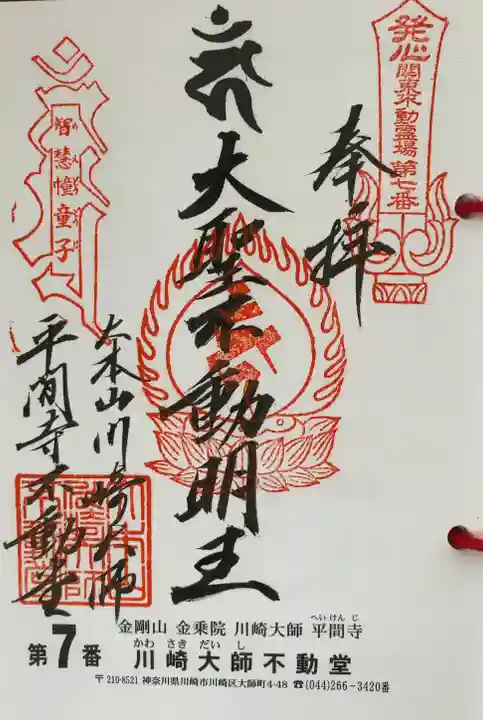 発心
関東不動霊場第七番
奉拝
大聖不動明王
智慧幢童子
大本山川崎大師
平間寺不動堂
金剛山 金乗院 川崎大師 平間寺
へいけんじ
第7番
かわさきだいし
川崎大師不動堂
〒210-8521 神奈川県川崎市川崎区大師町4-48 ☎(044)266-3420番